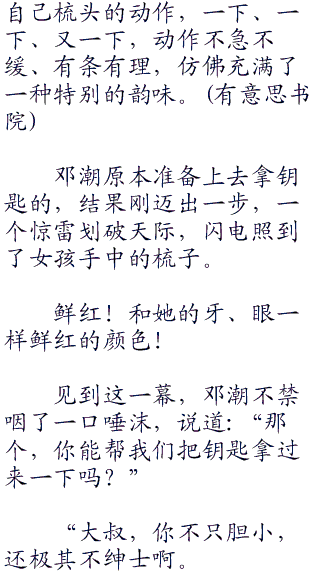 自己梳头的动作，一下、一
下、又一下，动作不急不
缓、有条有理，仿佛充满了
一种特别的韵味。（有意思书
院）
邓潮原本准备上去拿钥
匙的，结果刚迈出一步，一
个惊雷划破天际，闪电照到
了女孩手中的梳子。
鲜红！和她的牙、眼一
样鲜红的颜色！
见到这一幕，邓潮不禁
咽了一口唾沫，说道：“那
个，你能帮我们把钥匙拿过
来一下吗？”
“大叔，你不只胆小，
还极其不绅士啊。